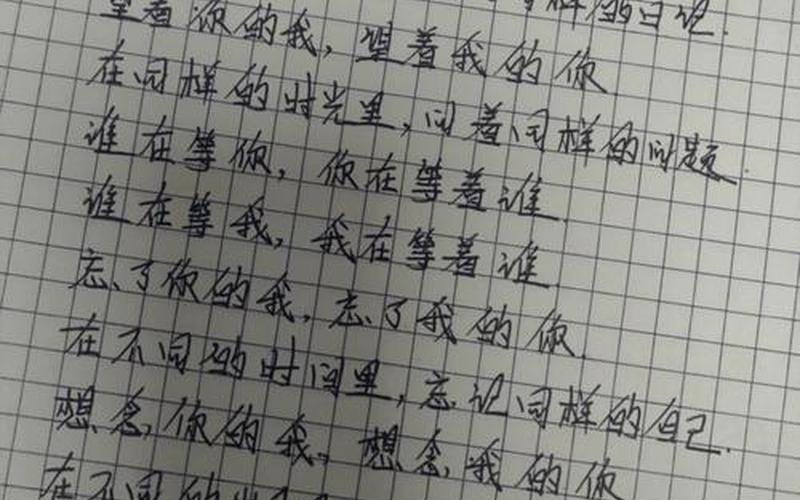 同样的日记.
望着你的我, 望着我的你
在同样的时光里, 问着同样的问题.
谁在等你, 你在等着谁
谁在等我, 我在等着谁
忘了你的我, 忘了我的你.
在不同的时间里, 忘记同样的自己.
想念你的我, 想念我的你
在不同的